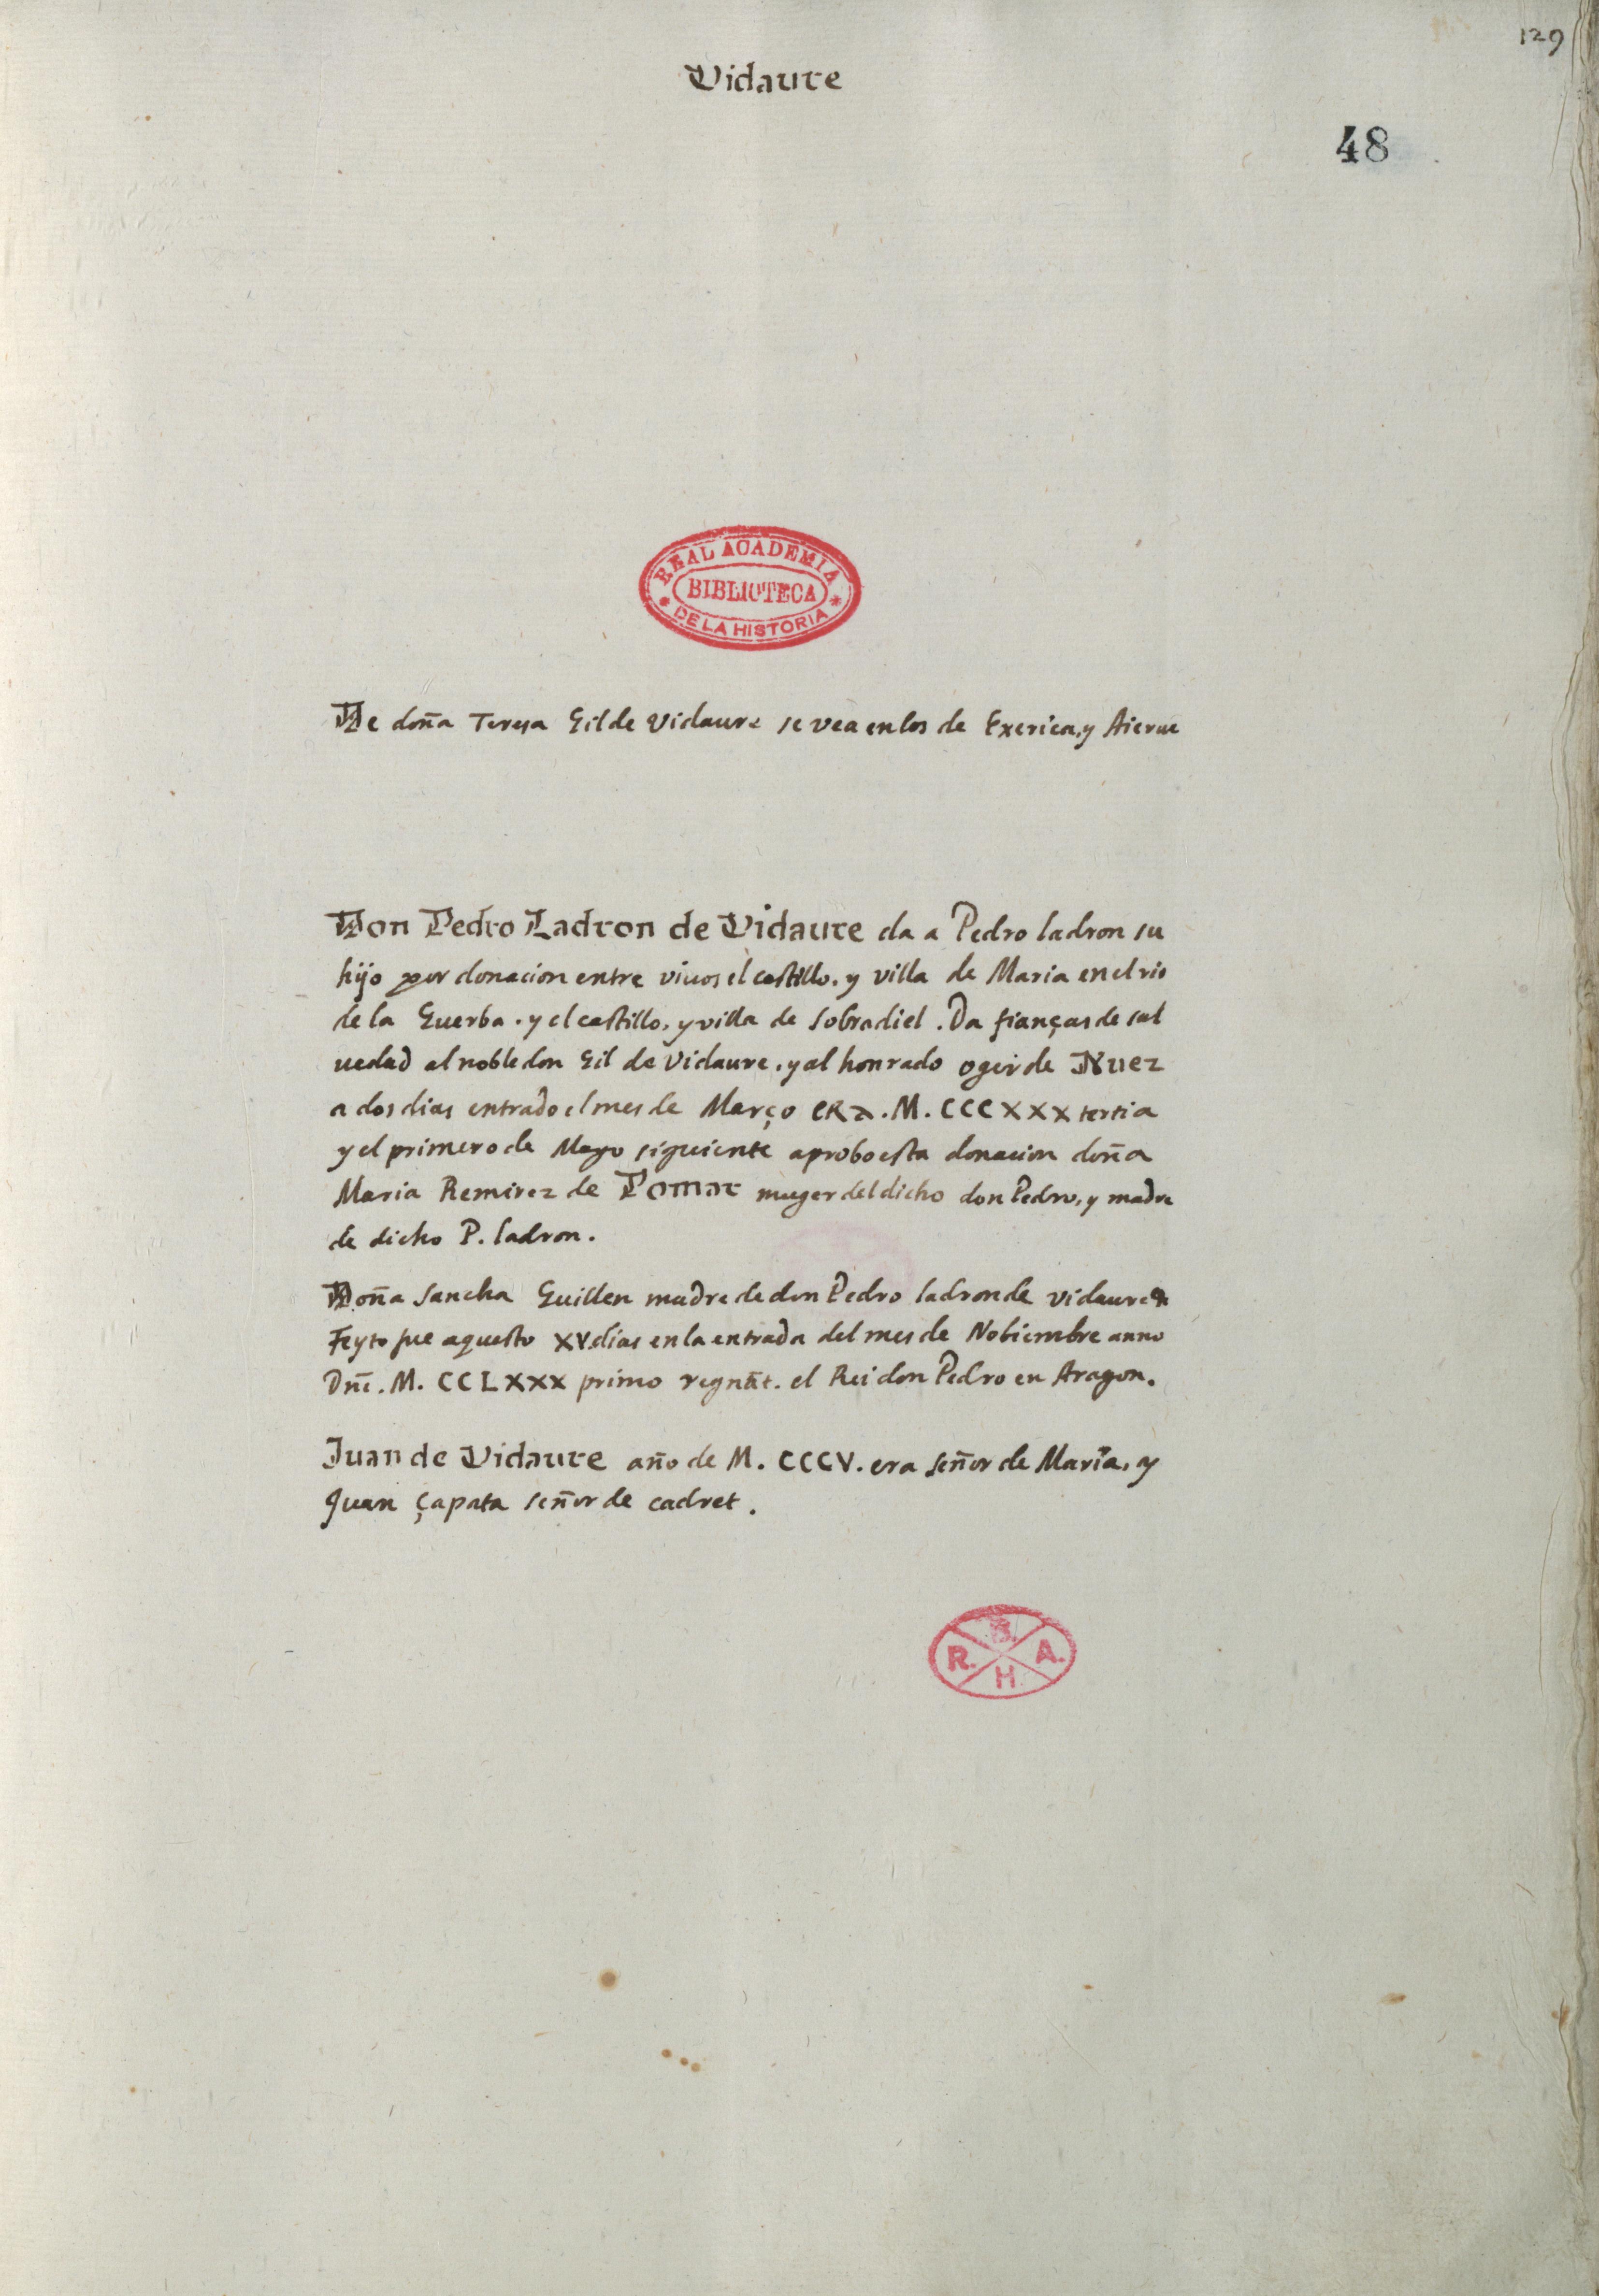 129
Vidaure
48
REAL ACADEMIA
BIBLIOTECA
DE LA HISTORIA
De doña Teresa Gil de Vidaure se vea en los de Exerica, y Aierue
Don Pedro Ladron de Vidaure da a Pedro ladron su
hijo por donacion entre viuos el castillo, y villa de Maria en el rio
de la Guerba. y el castillo, y villa de Sobradiel. Da fianças de sal
uedad al noble don Gil de Vidaure, y al honrado oger de Nuez
a dos dias entrado el mes de Março ERA. M. CCCXXX tertia
y el primero de Mayo siguiente aprobo esta donacion doña
Maria Remirez de Pomar muger del dicho don Pedro, y madre
de dicho P. ladron.
Doña Sancha Guillen madre de don Pedro ladron de vidaure
Feyto fue aquesto XV. dias en la entrada del mes de Nobiembre anno
Dnī. M. CCLXXX primo regnāt. el Rei don Pedro en Aragon.
Juan de Vidaure año de M. CCCV. era señor de Maria, y
Juan çapata señor de cadret.
B.
R. A.
H.